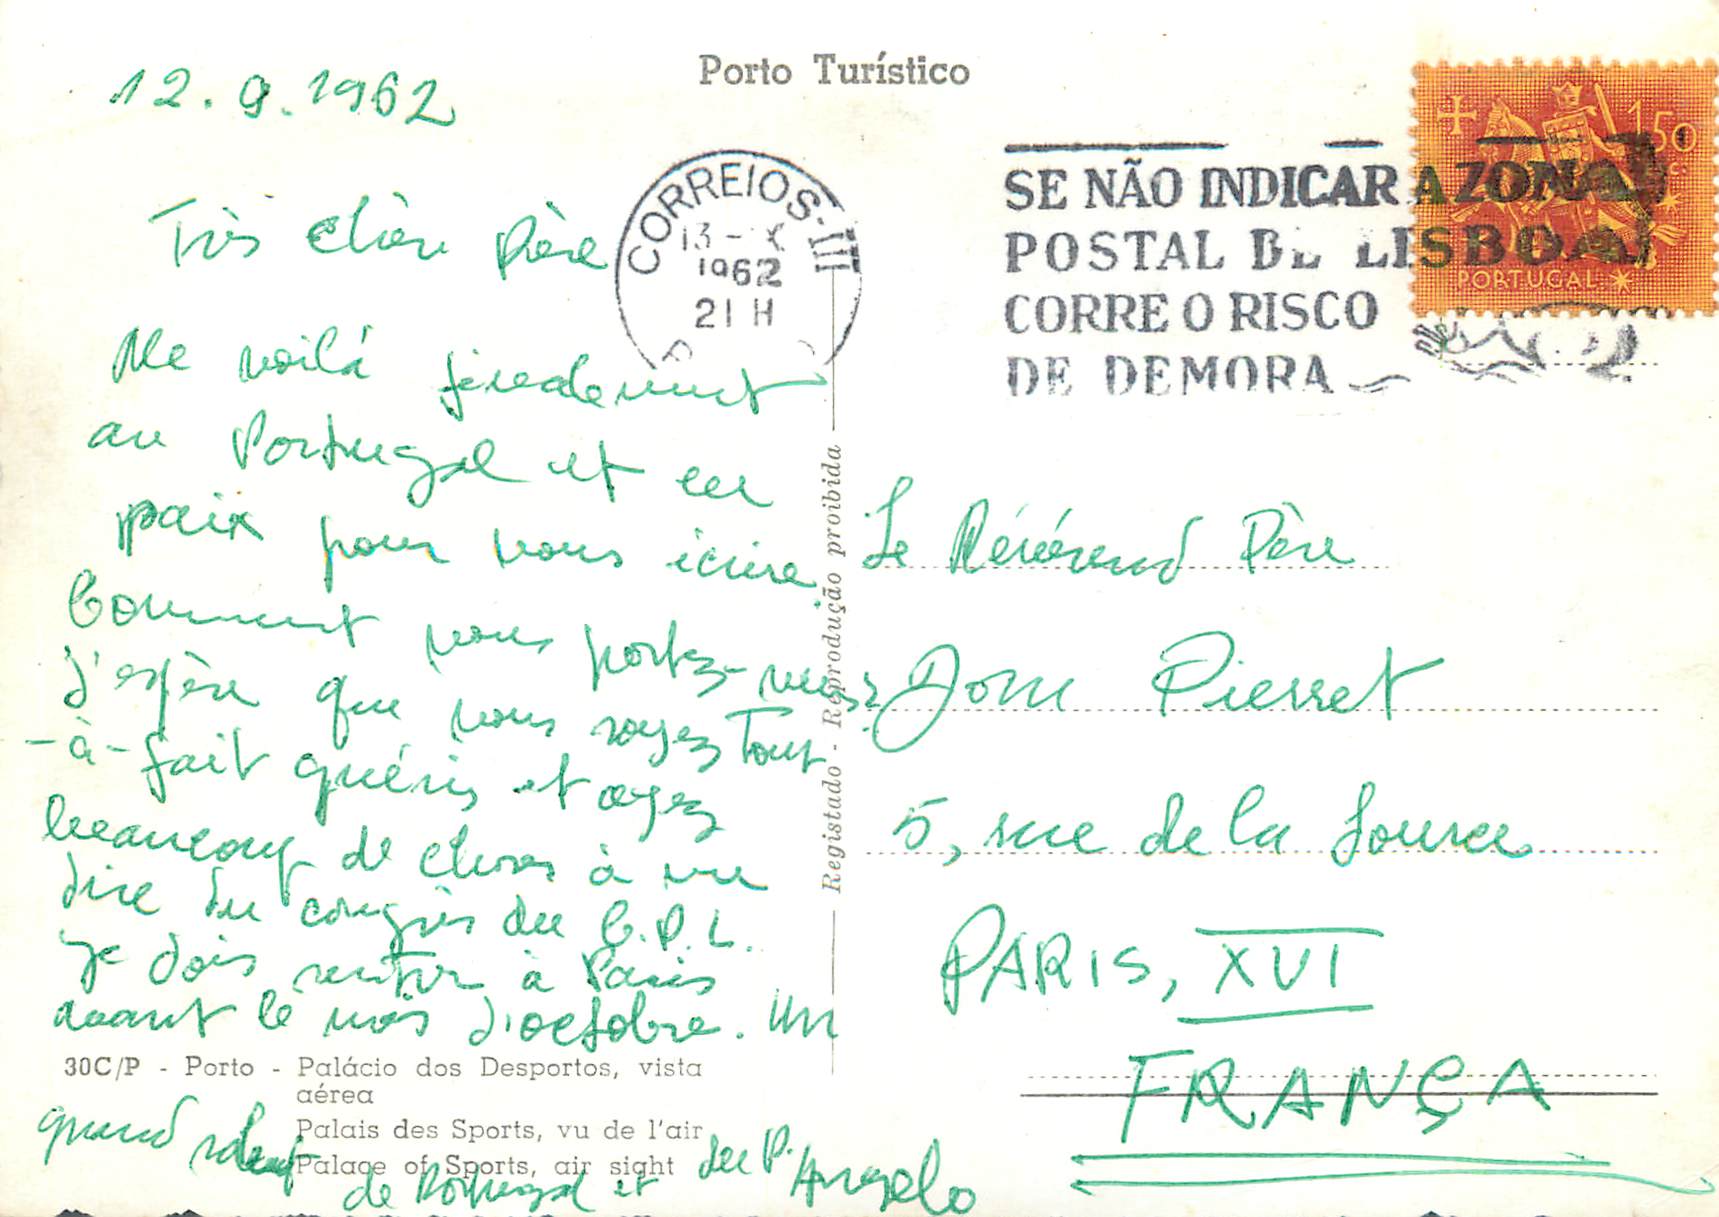 Porto Turístico
12.9.1962
Très chère Père
Me voilá finalement
au Portugal et en
paix pour vous écrire.
Comment vous portez-vous?
J'espère que vous soyez Tout
-à-fait guéris et ayez
beaucoup de choses à me
dire du congrès du C.P.L.
Je dois rentrer à Paris
avant le mois d'octobre. Un
quand salut
de Portugal et du P. Angelo
CORREIOS-III
13-X
1962
21 H
P
SE NÃO INDICAR A ZONA
POSTAL DE LISBOA
CORRE O RISCO
DE DEMORA
1$50
PORTUGAL
Registado - Reprodução proibida
Le Révérend Père
Dom Pierret
5, rue de la Source
PARIS, XVI
FRANÇA
30C/P - Porto - Palácio dos Desportos, vista
aérea
Palais des Sports, vu de l'air
Palace of Sports, air sight